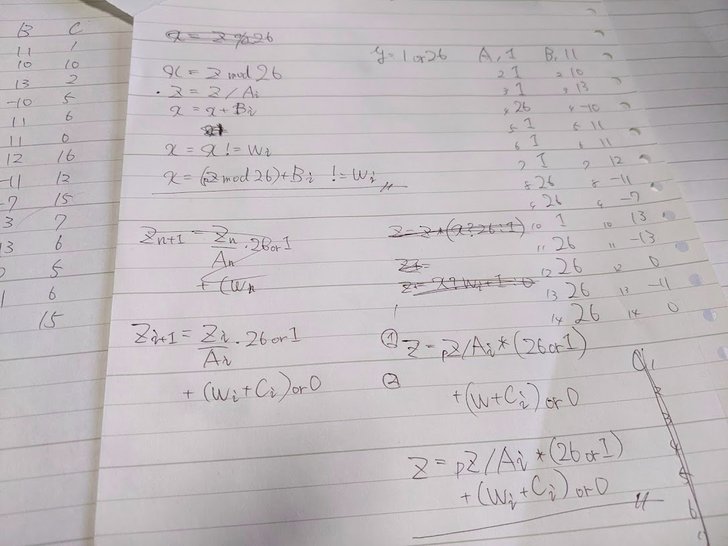 B C
11 1
10 10
13 2
-10 5
11 6
11 0
12 16
-11 12
-7 15
3 7
13 6
0 5
1 6
15
x = z % 26
x = z mod 26
z = z / Ai
x = x + Bi
x = x != Wi
x = (pz mod 26) + Bi != Wi
Zn+1 = Zn/An · 26 or 1
+ (Wn
Zi+1 = Zi/Ai · 26 or 1
+ (Wi + Ci) or 0
y = 1 or 26 A, 1 B, 11
2 1 2 10
3 1 3 13
4 26 4 -10
5 1 5 11
6 1 6 11
7 1 7 12
8 26 8 -11
9 26 9 -7
10 1 10 13
11 26 11 -13
12 26 12 0
13 26 13 -11
14 26 14 0
z = z * (x ? 26 : 1)
z +=
z = x ? Wi + 1 : 0
① z = pz / Ai * (26 or 1)
②
+ (W + Ci) or 0
z = pz / Ai * (26 or 1)
+ (Wi + Ci) or 0